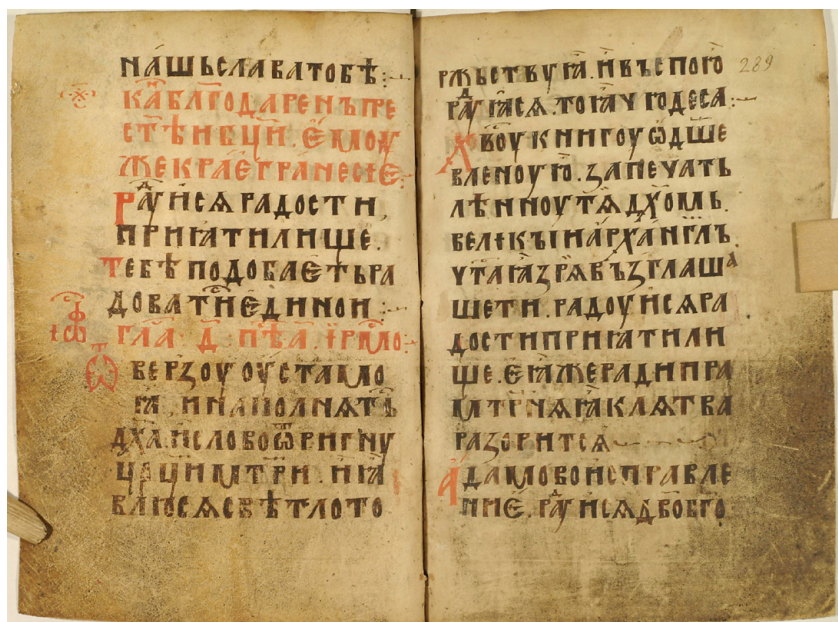 нашьславатобѣ:
ка҃блг҃одаренъпре
ст҃ѣибц҃и.емоу
жекраегранесие:
Раⷣуисѧрадости
приꙗтилище.
Тебѣподобаетьра
доватисѧединои:
гла҃.д҃.пѣ҃.їрмо:
ѿверзоуоустамо
ꙗ.инаполнѧтъ
дх҃а.исловоѿригну
цр҃цимт҃ри.иꙗ
влюсѧсвѣтлото
ржьствуꙗ.ивъспою 289
раⷣуꙗсѧ.тоꙗчюдеса:
Л воукнигоуѡдше
вленоую.запечать
лѣнноутѧдх҃омь.
великъиарха҃нг҃лъ.
чтаꙗзрѧвъзглаша
шети.радоуисѧра
достиприꙗтили
ще.еꙗжерадипра
мт҃рнѧꙗклѧтва
разоритсѧ
Адамовоисправле
ние.раⷣуисѧдв҃обг҃о